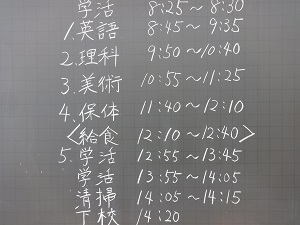 学活 8:25～8:30
1.英語 8:45～9:35
2.理科 9:50～10:40
3.美術 10:55～11:25
4.保体 11:40～12:10
<給食 12:10～12:40>
5.学活 12:55～13:45
学活 13:55～14:05
清掃 14:05～14:15
下校 14:20